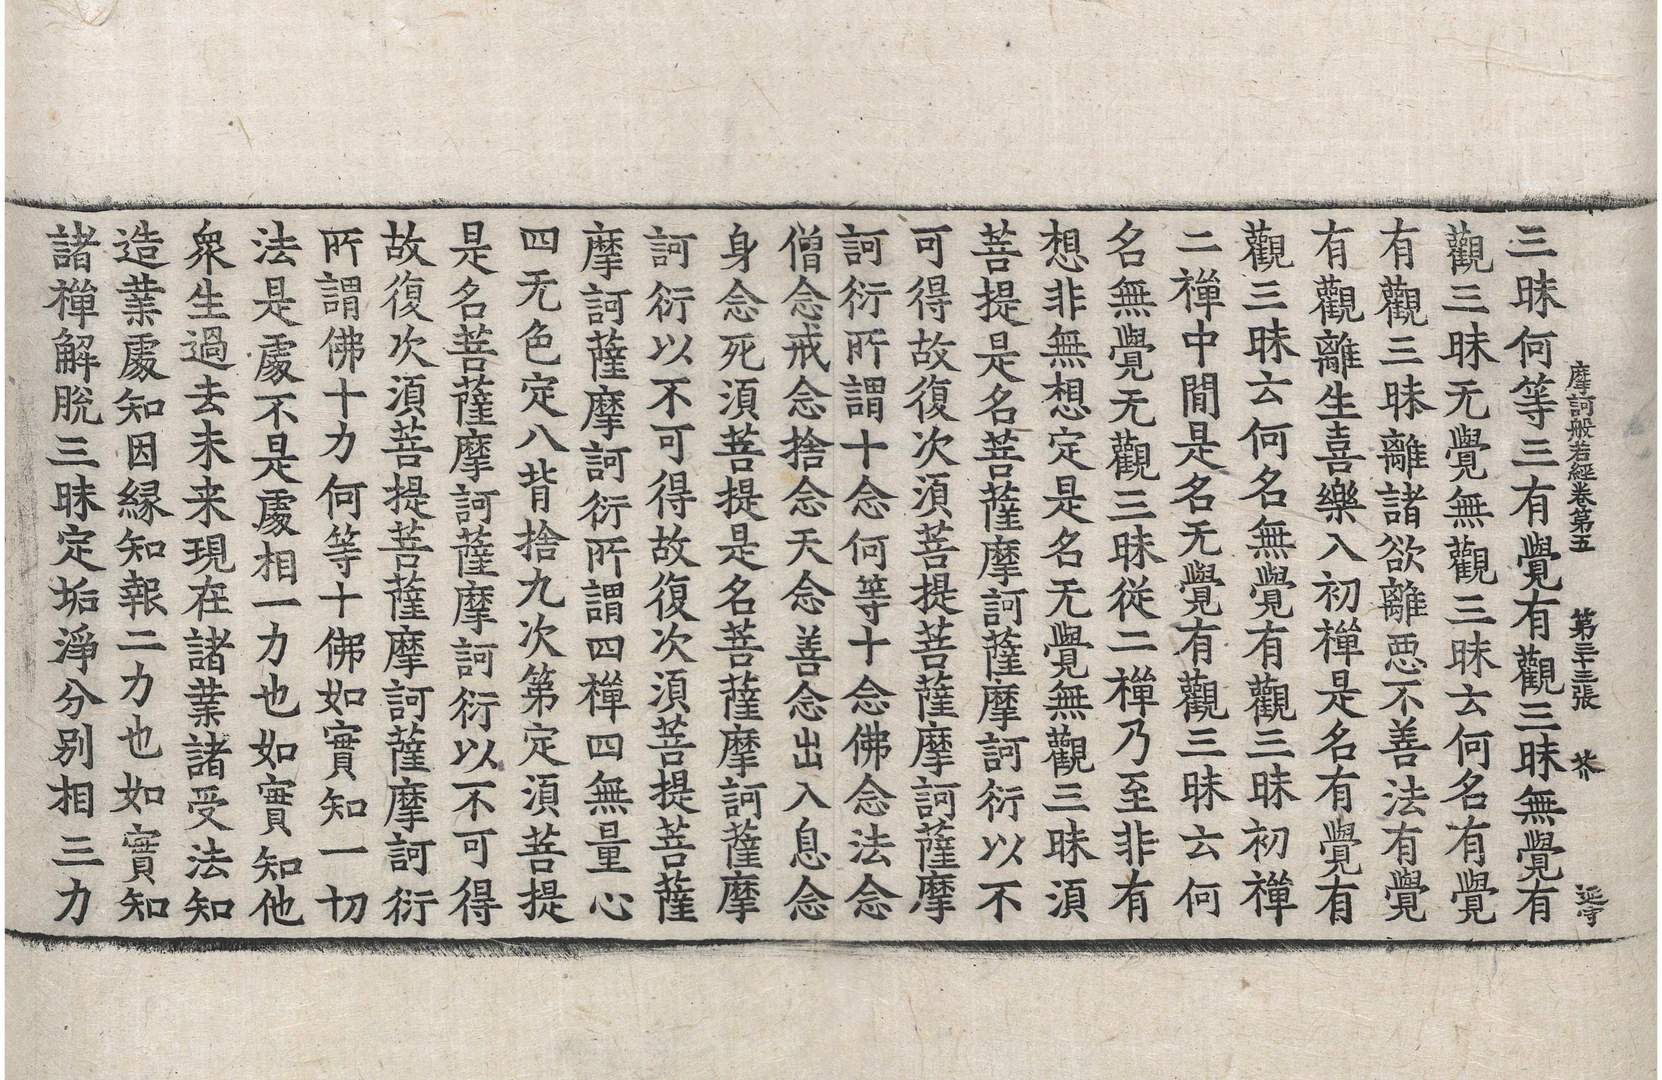 摩訶般若經卷第五 第三十三張 芥 延守
三昧何等三有覺有觀三昧無覺有
觀三昧无覺無觀三昧云何名有覺
有觀三昧離諸欲離惡不善法有覺
有觀離生喜樂入初禪是名有覺有
觀三昧云何名無覺有觀三昧初禪
二禪中間是名无覺有觀三昧云何
名無覺无觀三昧從二禪乃至非有
想非無想定是名无覺無觀三昧須
菩提是名菩薩摩訶薩摩訶衍以不
可得故復次須菩提菩薩摩訶薩摩
訶衍所謂十念何等十念佛念法念
僧念戒念捨念天念善念出入息念
身念死須菩提是名菩薩摩訶薩摩
訶衍以不可得故復次須菩提菩薩
摩訶薩摩訶衍所謂四禪四無量心
四无色定八背捨九次第定須菩提
是名菩薩摩訶薩摩訶衍以不可得
故復次須菩提菩薩摩訶薩摩訶衍
所謂佛十力何等十佛如實知一切
法是處不是處相一力也如實知他
衆生過去未来現在諸業諸受法知
造業處知因緣知報二力也如實知
諸禪解脫三昧定垢淨分别相三力